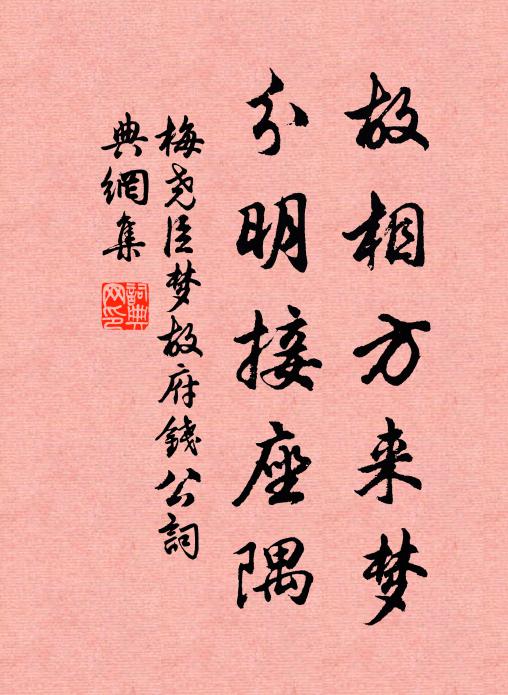 故相方来梦
分明接座隅
梅尧臣梦故府錢公詞
典網集
詞典
网印